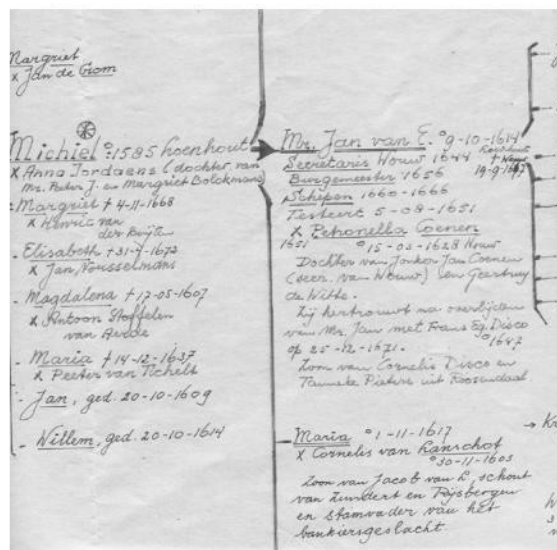 Margriet
x Jan de Grom
Michiel °: 1585 Loenhout
x Anna Jordaens (dochter van
Mr. Peter J. en Margriet Bolckmans)
- Margriet † 4-11-1668
x Henric van
der Buijten
- Elisabeth † 31-7-1672
x Jan Nousselmans
- Magdalena † 17-05-1607
x Antoon Stoffelen
van Aerde
- Maria † 14-12-1637
x Peeter van Tichelt
- Jan, ged. 20-10-1609
- Willem, ged. 20-10-1614
Mr. Jan van E. °9-10-1614
Secretaris Wouw 1644 † Wouw
Burgemeester 1656 19-9-1667
Schepen 1660-1666
Testeert 5-08-1651
x Petronella Coenen
1651 °15-03-1628 Wouw
Dochter van Jonker Jan Coenen
(secr. van Wouw) en Geertruy
de Witte.
Zij hertrouwt na overlijden
van Mr. Jans met Frans Eg. Disco
op 25-12-1671. °1647
Zoon van Cornelis Disco en
Tanneke Pieters uit Roosendaal
- Maria °1-11-1617
x Cornelis van Lanschot
°30-11-1603
Zoon van Jacob van L, schout
van Zundert en Rijsbergen
en stamvader van het
bankiersgeslacht